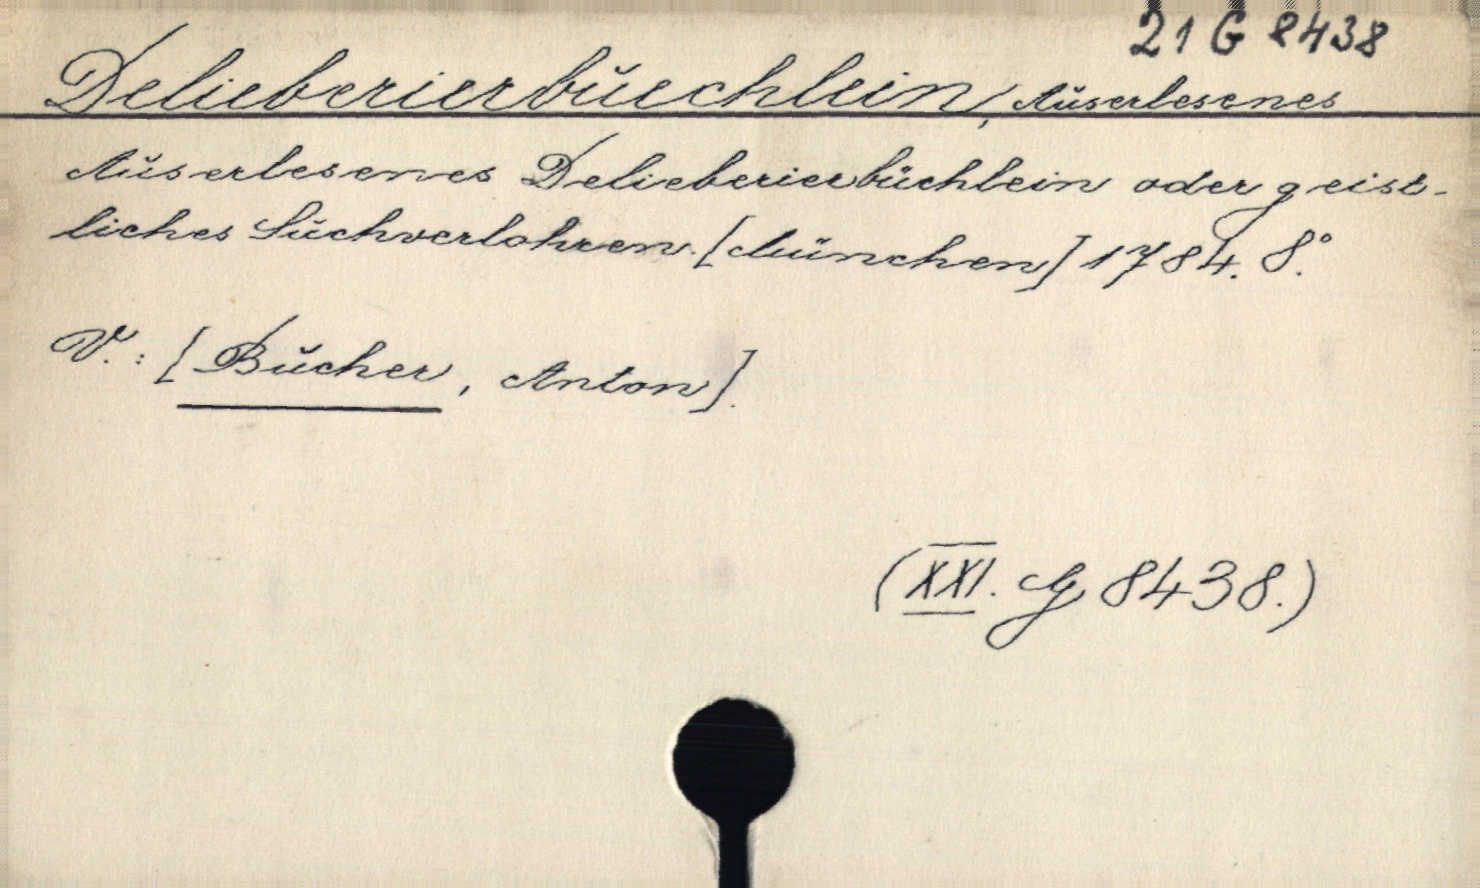 21 G 8438
Delieberierbuechlein, Auserlesenes
Auserlesenes Delieberierbüchlein oder geist-
liches Suchverlohren. [München] 1784. 8°.
V.: [Bucher, Anton].
(XXI. G 8438.)